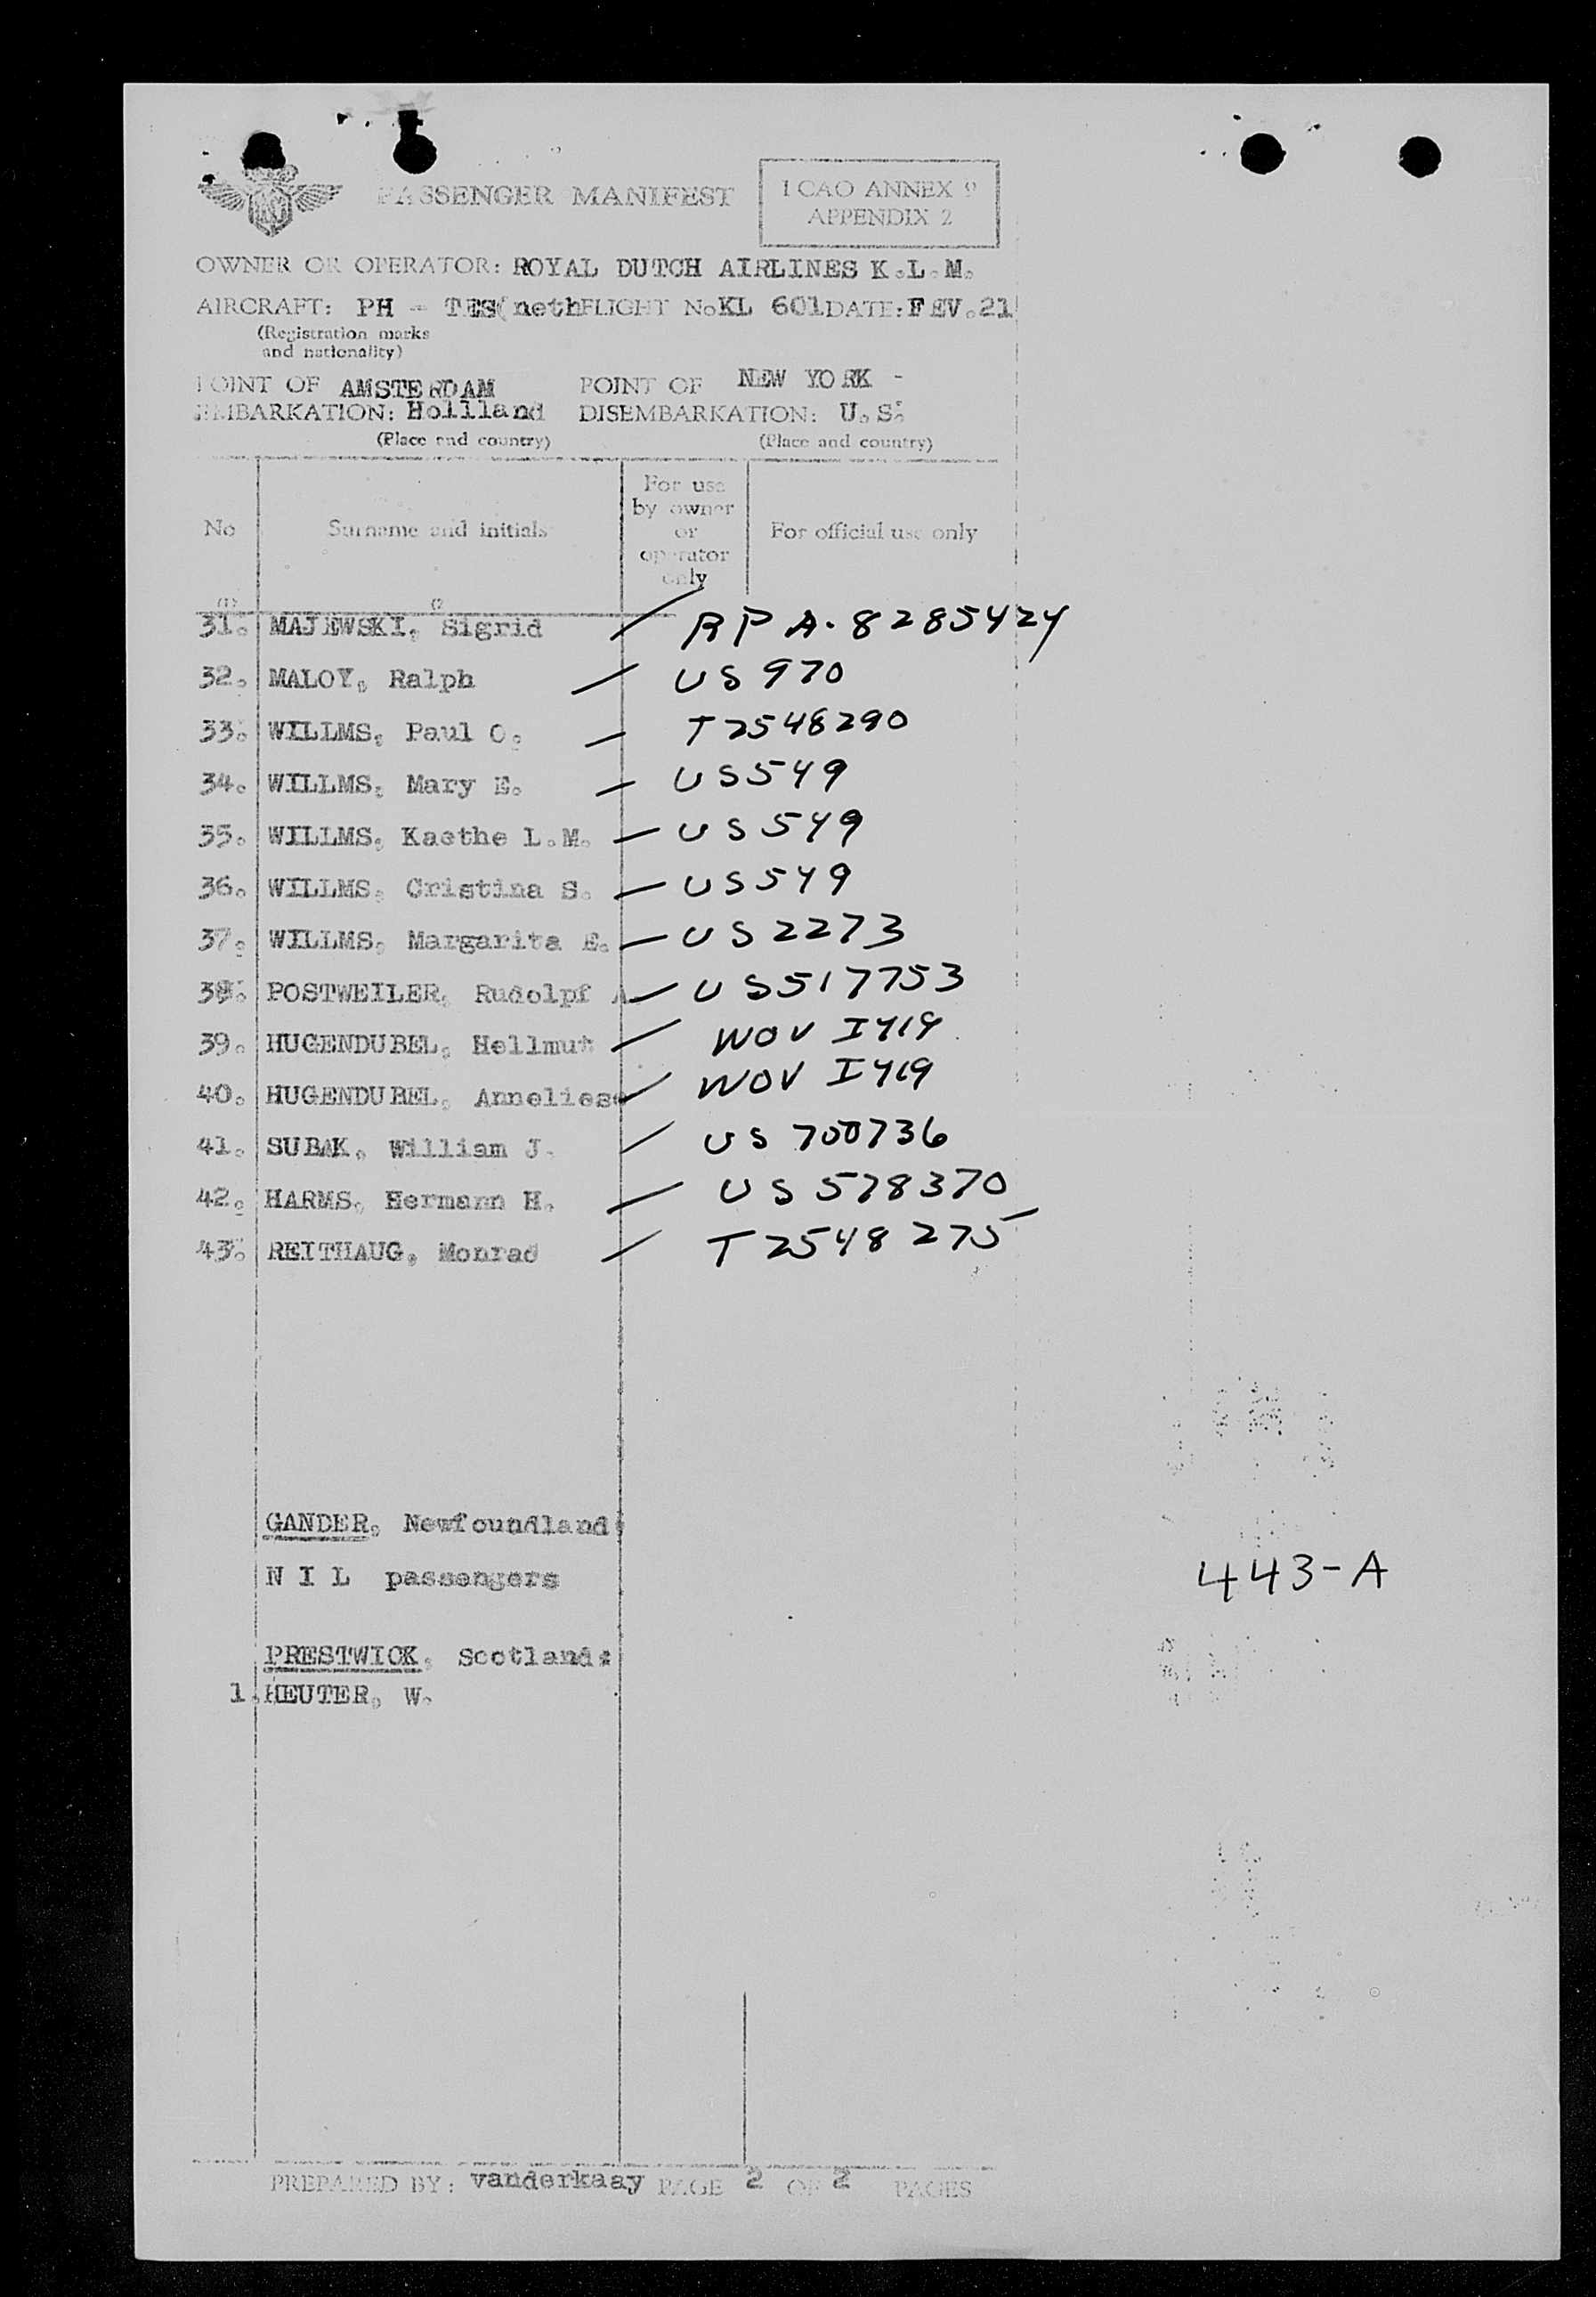 PASSENGER MANIFEST
ICAO ANNEX 9
APPENDIX 2
OWNER OR OPERATOR: ROYAL DUTCH AIRLINES K.L.M.
AIRCRAFT: PH - TES(neth FLIGHT No KL 601 DATE: FEV.21
(Registration marks
and nationality)
POINT OF AMSTERDAM POINT OF NEW YORK -
EMBARKATION: Hollland DISEMBARKATION: U.S.
(Place and country) (Place and country)
No Surname and initials For use by owner or operator only For official use only
(1) (2
31. MAJEWSKI, Sigrid RPA. 8285424
32. MALOY, Ralph US 970
33. WILLMS, Paul O. T2548290
34. WILLMS, Mary E. US549
35. WILLMS, Kaethe L.M. US549
36. WILLMS, Cristina S. US549
37. WILLMS, Margarita E. US2273
38. POSTWEILER, Rudolpf A. US517753
39. HUGENDUBEL, Hellmut WOV I419
40. HUGENDUBEL, Anneliese WOV I419
41. SUBAK, William J. US 700736
42. HARMS, Hermann H. US 578370
43. REITHAUG, Monrad T2548275
GANDER, Newfoundland:
N I L passengers
443-A
PRESTWICK, Scotland:
1. HEUTER, W.
PREPARED BY: vanderkaay PAGE 2 OF 2 PAGES